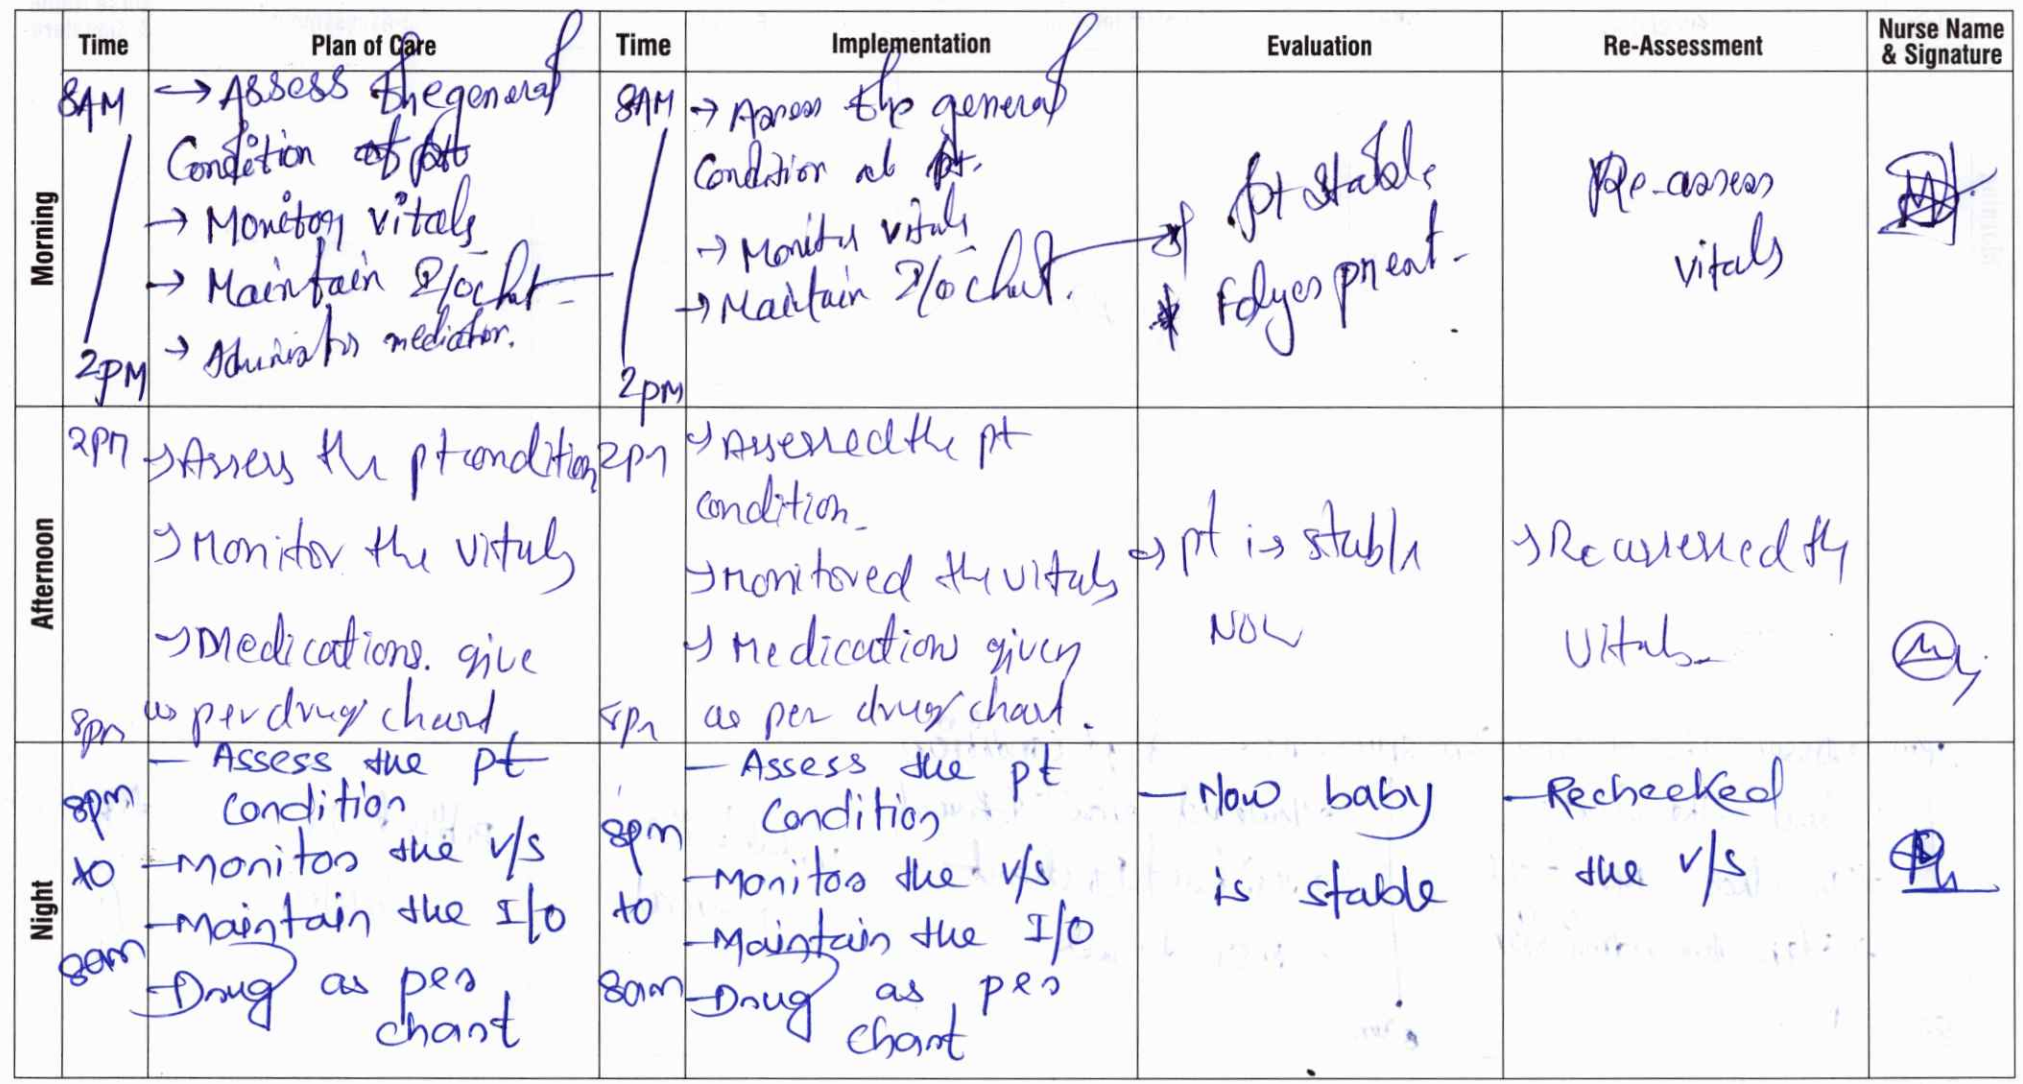 Time Plan of Care Time Implementation Evaluation Re-Assessment Nurse Name & Signature
Morning
8AM
2PM
→ Assess the general
Condition of pt
→ Monitor vitals
→ Maintain I/O chat
→ Administer
8AM
2PM
→ Assess the general
Condition of pt.
→ Monitor vitals
→ Maintain I/O chat.
pt stable
* present.
Re-assess
vitals
Afternoon
2pm
8pm
→ Assess the pt condition
→ Monitor the vitals
→ Medications. give
as per drug chart
2pm
8pm
→ Assessed the pt
condition
→ Monitored the vitals
→ Medication given
as per drug chart.
→ pt is stable
Now
→ Reassessed the
Vitals
Night
8pm
to
8am
– Assess the pt
Condition
– Monitor the v/s
– Maintain the I/O
– Drug as per
chart
8pm
to
8am
– Assess the pt
Condition
– Monitor the v/s
– Maintain the I/O
– Drug as per
chart
– Now baby
is stable
– Rechecked
the v/s